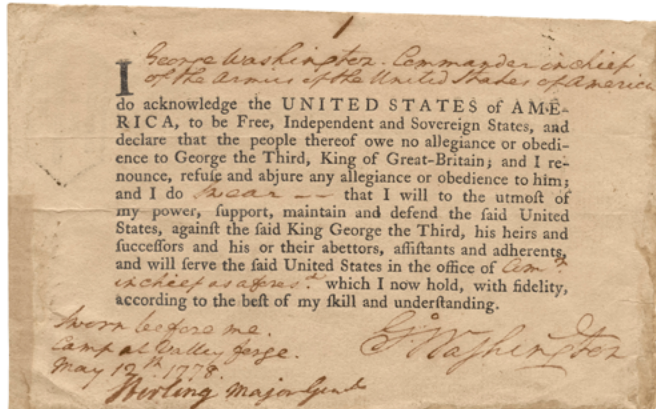 I George Washington. Commander in chief
of the Armies of the United States of America
do acknowledge the UNITED STATES of AME-
RICA, to be Free, Independent and Sovereign States, and
declare that the people thereof owe no allegiance or obedi-
ence to George the Third, King of Great-Britain; and I re-
nounce, refuſe and abjure any allegiance or obedience to him;
and I do swear -- that I will to the utmoſt of
my power, ſupport, maintain and defend the ſaid United
States, againſt the ſaid King George the Third, his heirs and
ſucceſſors and his or their abettors, aſſiſtants and adherents,
and will ſerve the ſaid United States in the office of Comr.
in chief as afores.d which I now hold, with fidelity,
according to the beſt of my ſkill and underſtanding.
Sworn before me.
Camp at Valley forge.
May 12th. 1778
Stirling, Major Genl
Go Washington